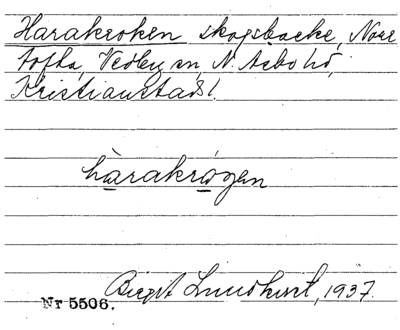 Harakroken skogsbacke, Norr
tofta, Vedby sn, N. Åsbo hd,
Kristianstads l.
hàrakrógen
Birgit Lundkvist, 1937.
Nr 5506.